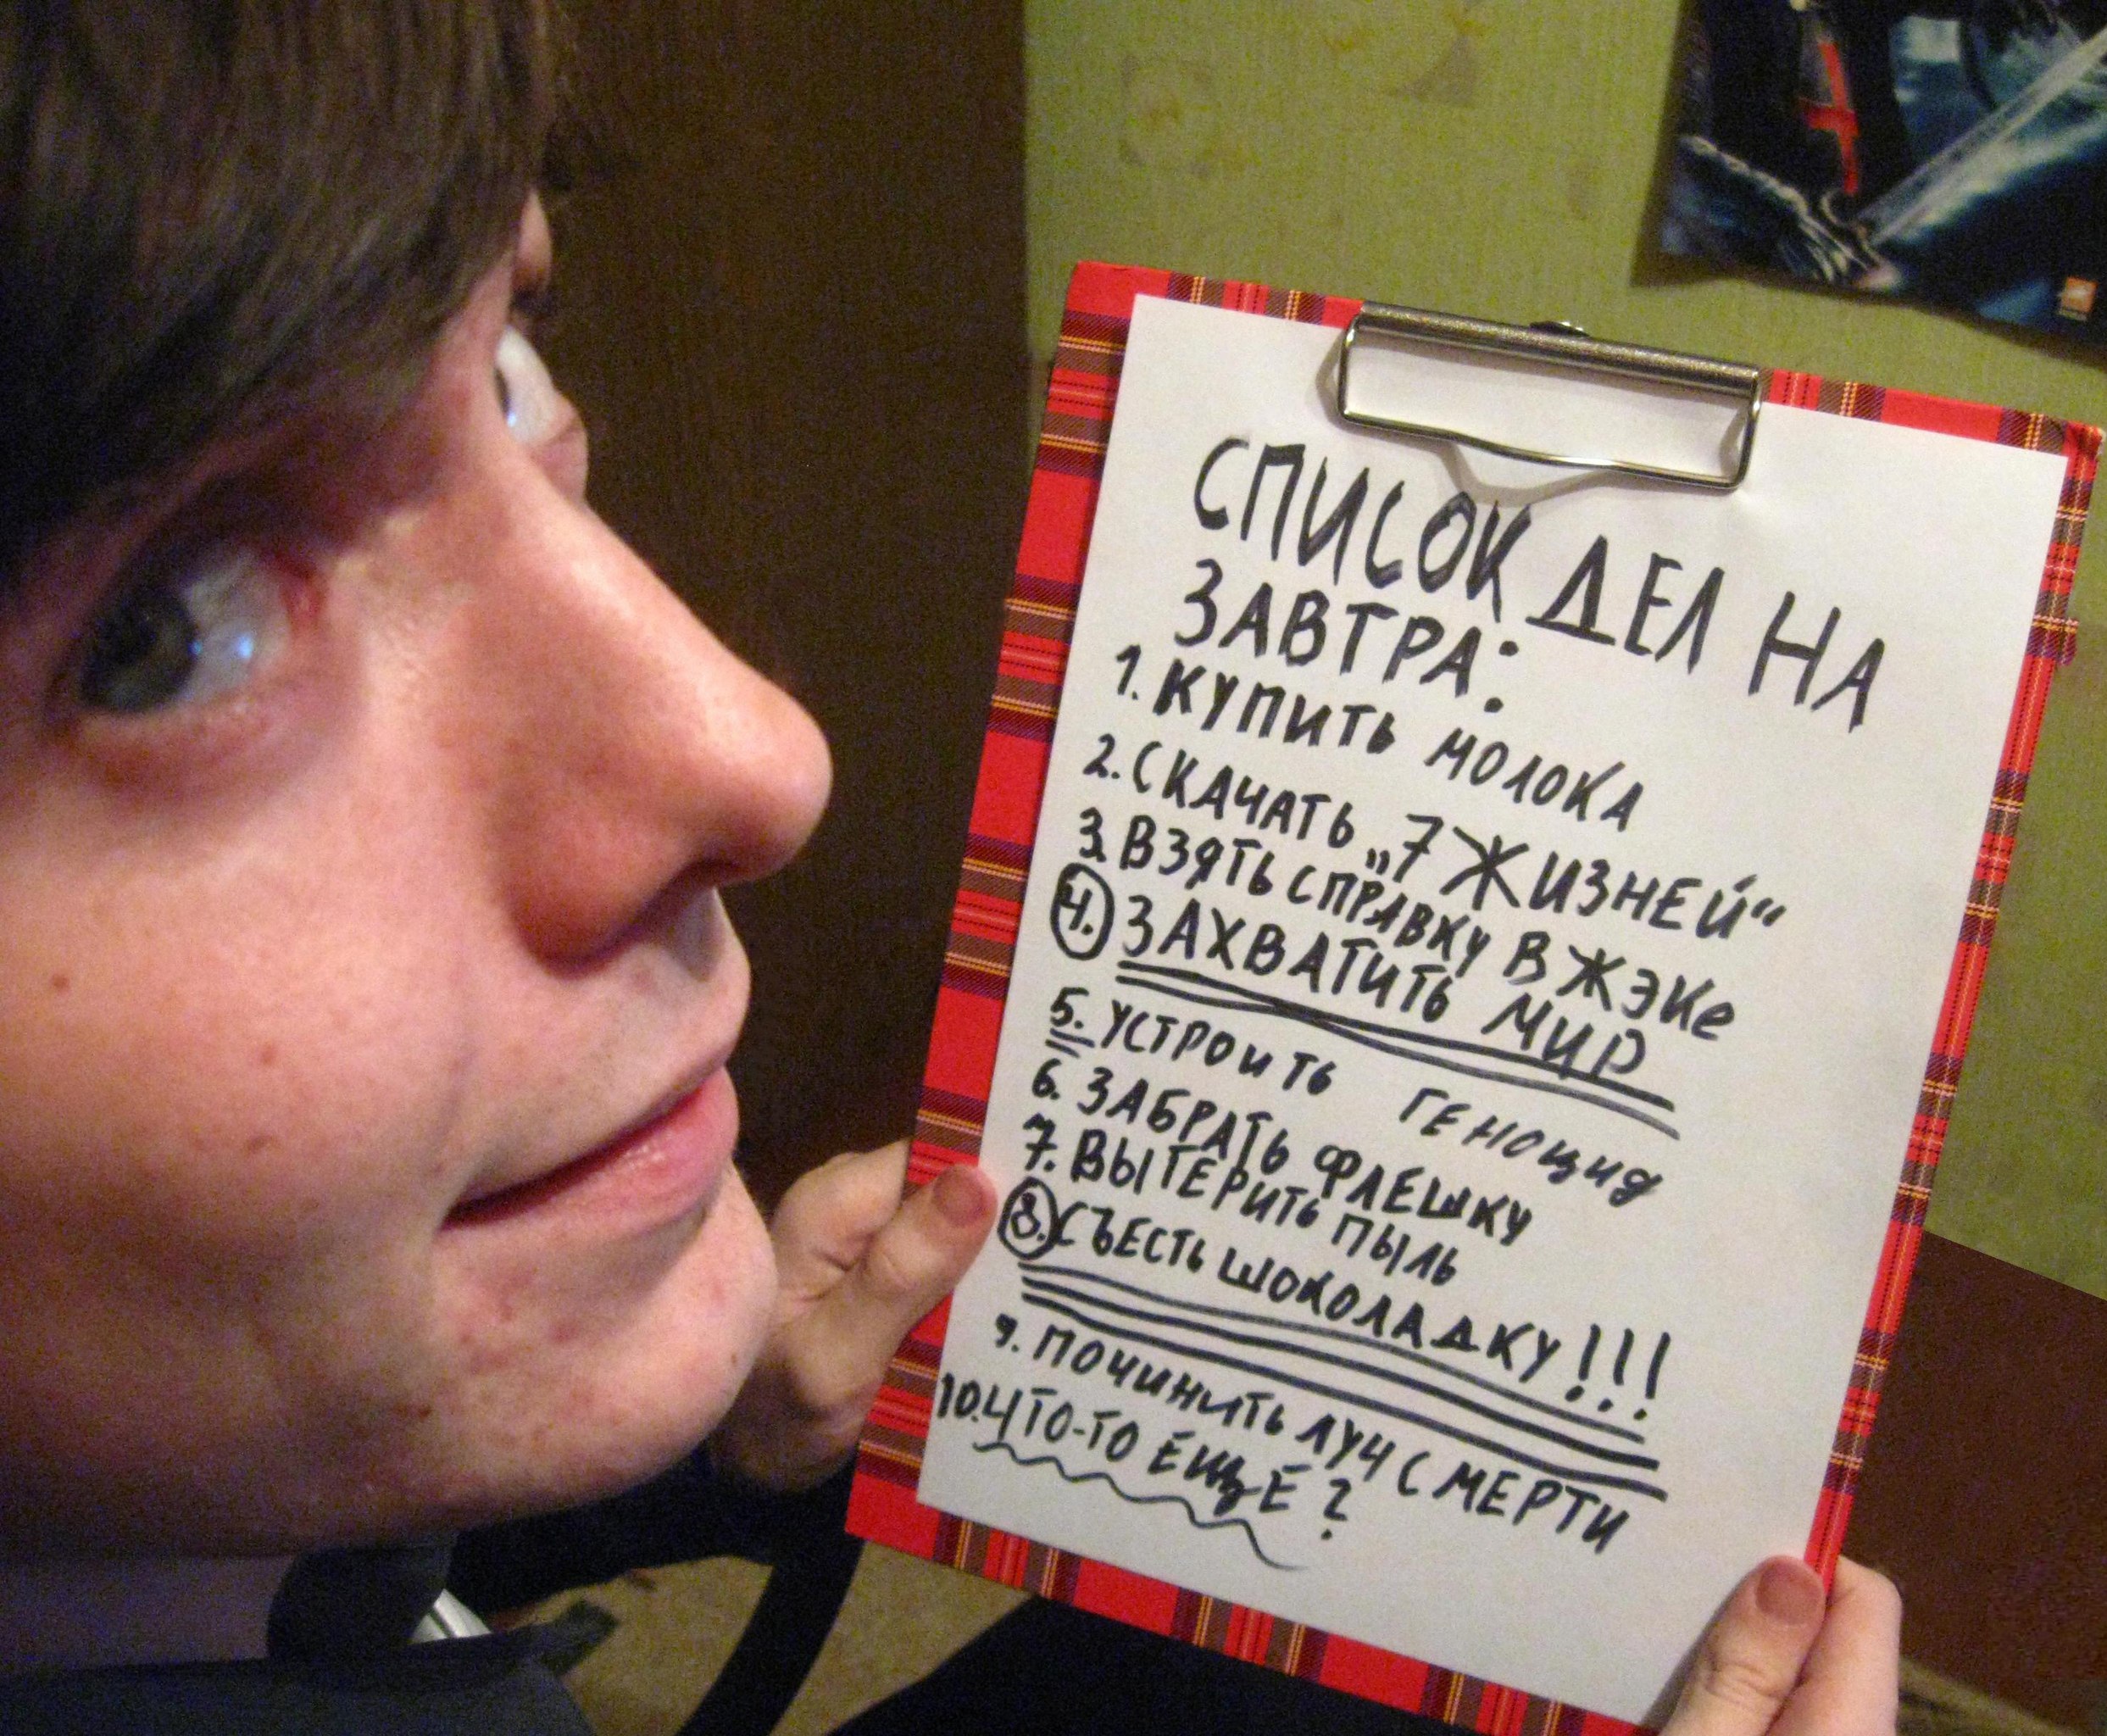 СПИСОК ДЕЛ НА
ЗАВТРА:
1. КУПИТЬ МОЛОКА
2. СКАЧАТЬ „7 ЖИЗНЕЙ“
3. ВЗЯТЬ СПРАВКУ В ЖЭКе
4. ЗАХВАТИТЬ МИР
5. УСТРОИТЬ ГЕНОЦИД
6. ЗАБРАТЬ ФЛЕШКУ
7. ВЫТЕРИТЬ ПЫЛЬ
8. СЪЕСТЬ ШОКОЛАДКУ!!!
9. ПОЧИНИТЬ ЛУЧ СМЕРТИ
10. ЧТО-ТО ЕЩЁ?